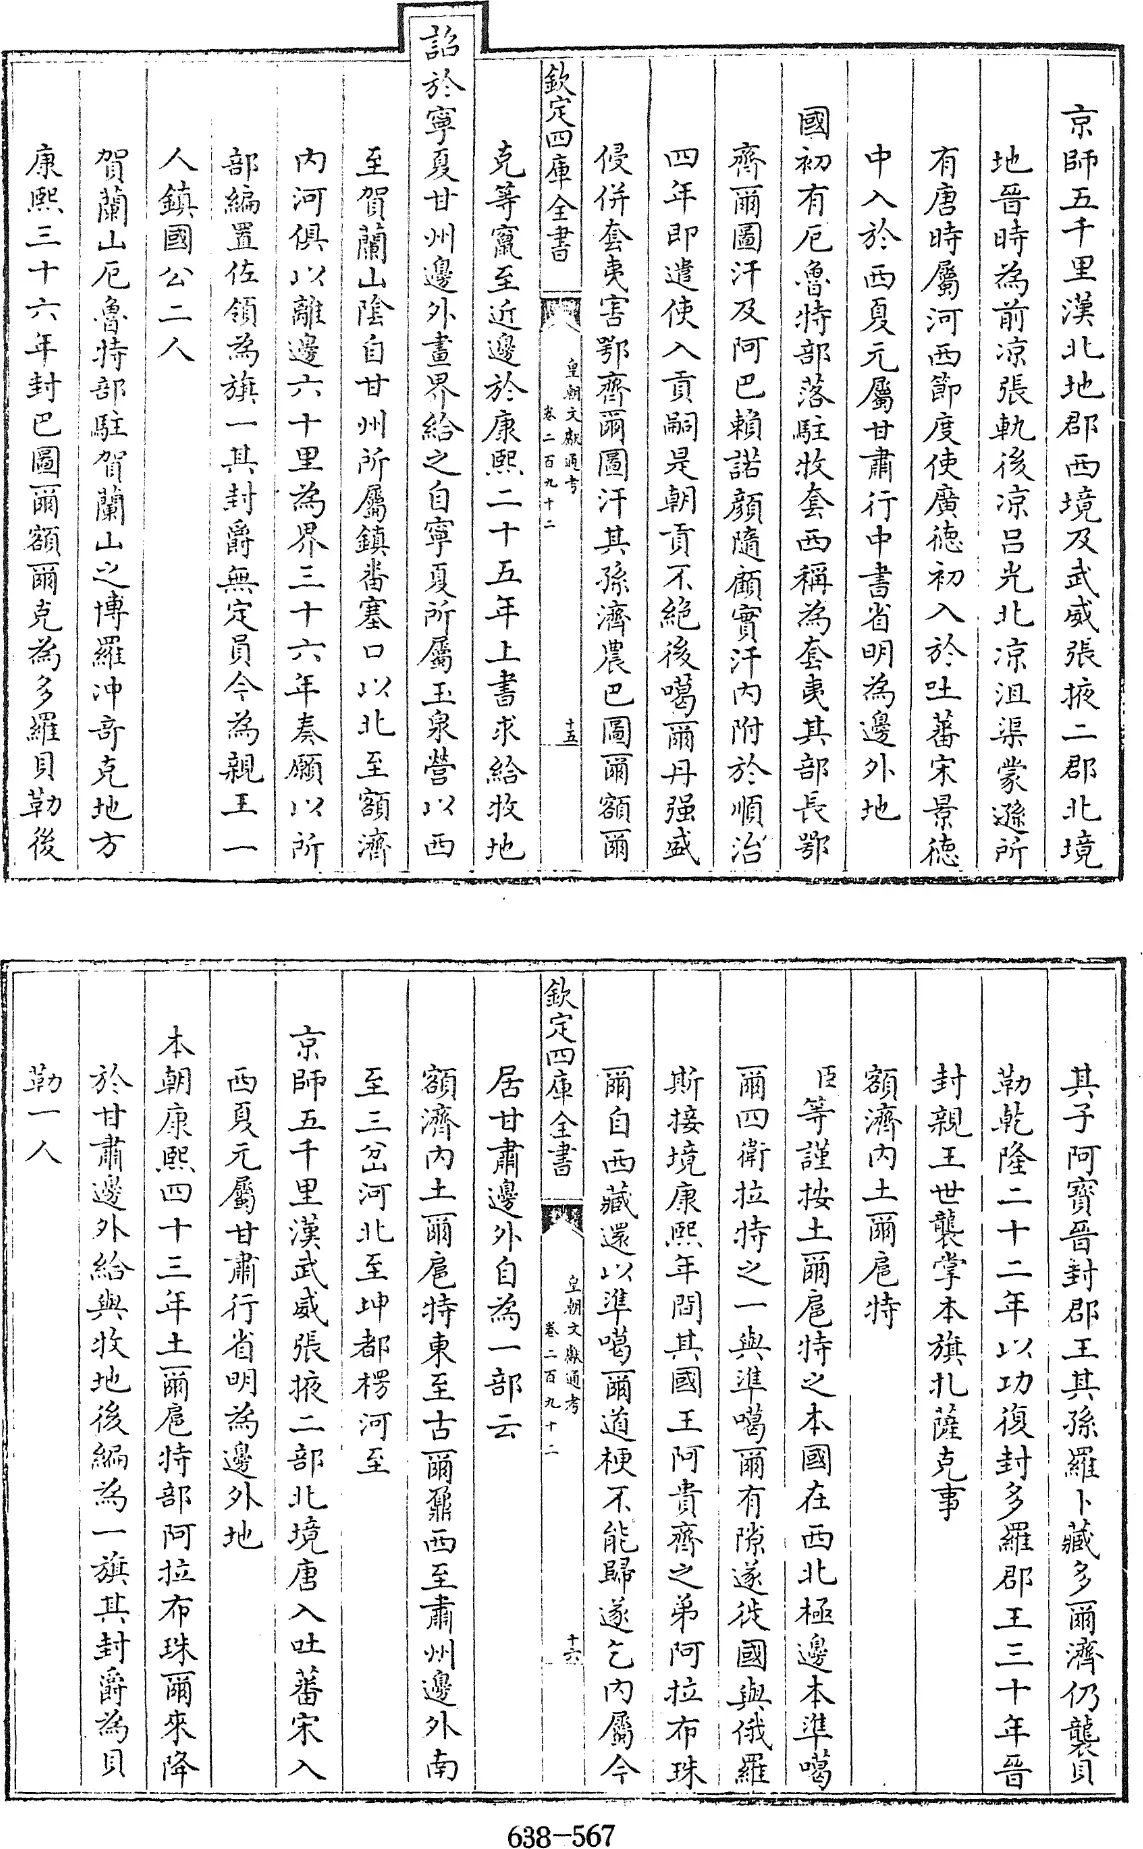 京師五千里漢北地郡西境及武威張掖二郡北境
地晉時為前凉張軌後凉吕光北凉沮渠蒙遜所
有唐時屬河西節度使廣德初入於吐蕃宋景德
中入於西夏元屬甘肅行中書省明為邊外地
國初有厄魯特部落駐牧套西稱為套夷其部長鄂
齊爾圖汗及阿巴賴諾顏隨顧實汗內附於順治
四年即遣使入貢嗣是朝貢不絶後噶爾丹强盛
侵併套夷害鄂齊爾圖汗其孫濟農巴圖爾額爾
欽定四庫全書
皇朝文獻通考
卷二百九十二
十五
克等竄至近邊於康熙二十五年上書求給牧地
詔於寧夏甘州邊外畫界給之自寧夏所屬玉泉營以西
至賀蘭山陰自甘州所屬鎮畨塞口以北至額濟
內河俱以離邊六十里為界三十六年奏願以所
部編置佐領為旗一其封爵無定員今為親王一
人鎮國公二人
賀蘭山厄魯特部駐賀蘭山之博羅冲竒克地方
康熙三十六年封巴圖爾額爾克為多羅貝勒後
其子阿寶晉封郡王其孫羅卜藏多爾濟仍襲貝
勒乾隆二十二年以功復封多羅郡王三十年晉
封親王世襲掌本旗扎薩克事
額濟內土爾扈特
臣等謹按土爾扈特之本國在西北極邊本準噶
爾四衛拉特之一與準噶爾有隙遂徙國與俄羅
斯接境康熙年間其國王阿貴齊之弟阿拉布珠
爾自西藏還以準噶爾道梗不能歸遂乞內屬今
欽定四庫全書
皇朝文獻通考
卷二百九十二
十六
居甘肅邊外自為一部云
額濟內土爾扈特東至古爾鼐西至肅州邊外南
至三岔河北至坤都楞河至
京師五千里漢武威張掖二部北境唐入吐蕃宋入
西夏元屬甘肅行省明為邊外地
本朝康熙四十三年土爾扈特部阿拉布珠爾來降
於甘肅邊外給與牧地後編為一旗其封爵為貝
勒一人
638-567